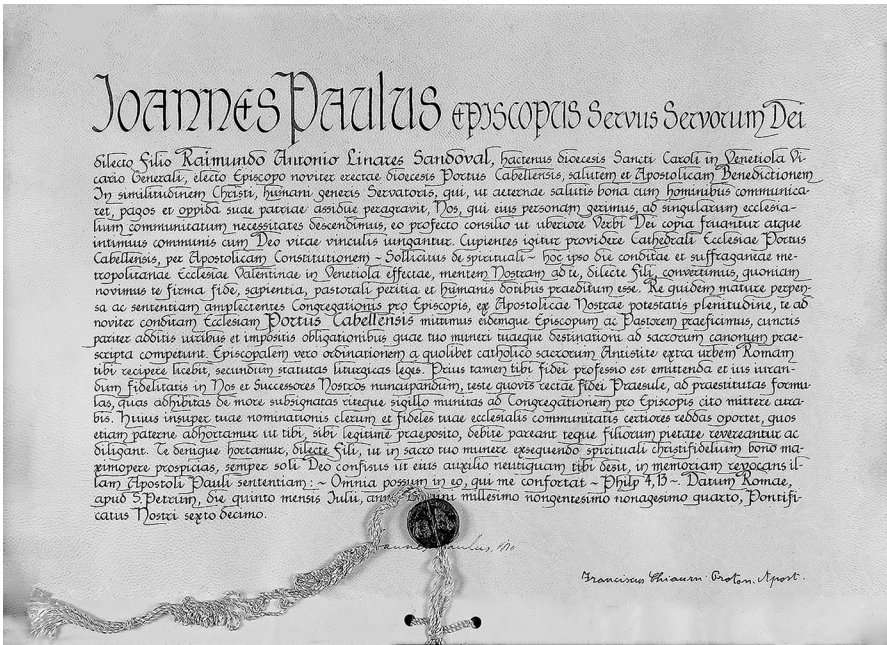 Joannes Paulus Episcopus Servus Servorum Dei
dilecto Filio Raimundo Antonio Linares Sandoval, hactenus dioecesis Sancti Caroli in Venetiola Vi-
cario Generali, electo Episcopo noviter erectae dioecesis Portus Cabellensis, salutem et Apostolicam Benedictionem
In similitudinem Christi, humani generis Servatoris, qui, ut aeternae salutis bona cum hominibus communica-
ret, pagos et oppida suae patriae assidue peragravit, Nos, qui eius personam gerimus, ad singularum ecclesia-
lium communitatum necessitates descendimus, eo profecto consilio ut uberiore Verbi Dei copia fruantur atque
intimius communis cum Deo vitae vinculis iungantur. Cupientes igitur providere Cathedrali Ecclesiae Portus
Cabellensis, per Apostolicam Constitutionem ~ Sollicitus de spirituali ~ hoc ipso die conditae et suffraganeae me-
tropolitanae Ecclesiae Valentinae in Venetiola effectae, mentem Nostram ad te, dilecte Fili, convertimus, quoniam
novimus te firma fide, sapientia, pastorali peritia et humanis dotibus praeditum esse. Re quidem mature perpen-
sa ac sententiam amplectentes Congregationis pro Episcopis, ex Apostolicae Nostrae potestatis plenitudine, te ad
noviter conditam Ecclesiam Portus Cabellensis mittimus eidemque Episcopum ac Pastorem praeficimus, cunctis
pariter additis iuribus et impositis obligationibus quae tuo muneri tuaeque destinationi ad sacrorum canonum prae-
scripta competunt. Episcopalem vero ordinationem a quolibet catholico sacrorum Antistite extra urbem Romam
tibi recipere licebit, secundum statutas liturgicas leges. Prius tamen tibi fidei professio est emittenda et ius iuran-
dum fidelitatis in Nos et Successores Nostros nuncupandum, teste quovis rectae fidei Praesule, ad praestitutas formu-
las, quas adhibitas de more subsignatas riteque sigillo munitas ad Congregationem pro Episcopis cito mittere cura-
bis. Huius insuper tuae nominationis clerum et fideles tuae ecclesialis communitatis certiores reddas oportet, quos
etiam paterne adhortamur ut tibi, sibi legitime praeposito, debite pareant teque filiorum pietate revereantur ac
diligant. Te denique hortamur, dilecte Fili, ut in sacro tuo munere exsequendo spirituali christifidelium bono ma-
ximopere prospicias, semper soli Deo confisus ut eius auxilio neutiquam tibi desit, in memoriam revocans il-
lam Apostoli Pauli sententiam: ~ Omnia possum in eo, qui me confortat ~ Philp 4,13 ~. Datum Romae,
apud S. Petrum, die quinto mensis Iulii, anno Domini millesimo nongentesimo nonagesimo quarto, Pontifi-
catus Nostri sexto decimo.
Joannes Paulus
Franciscus Chiaurri Proton. Apost.